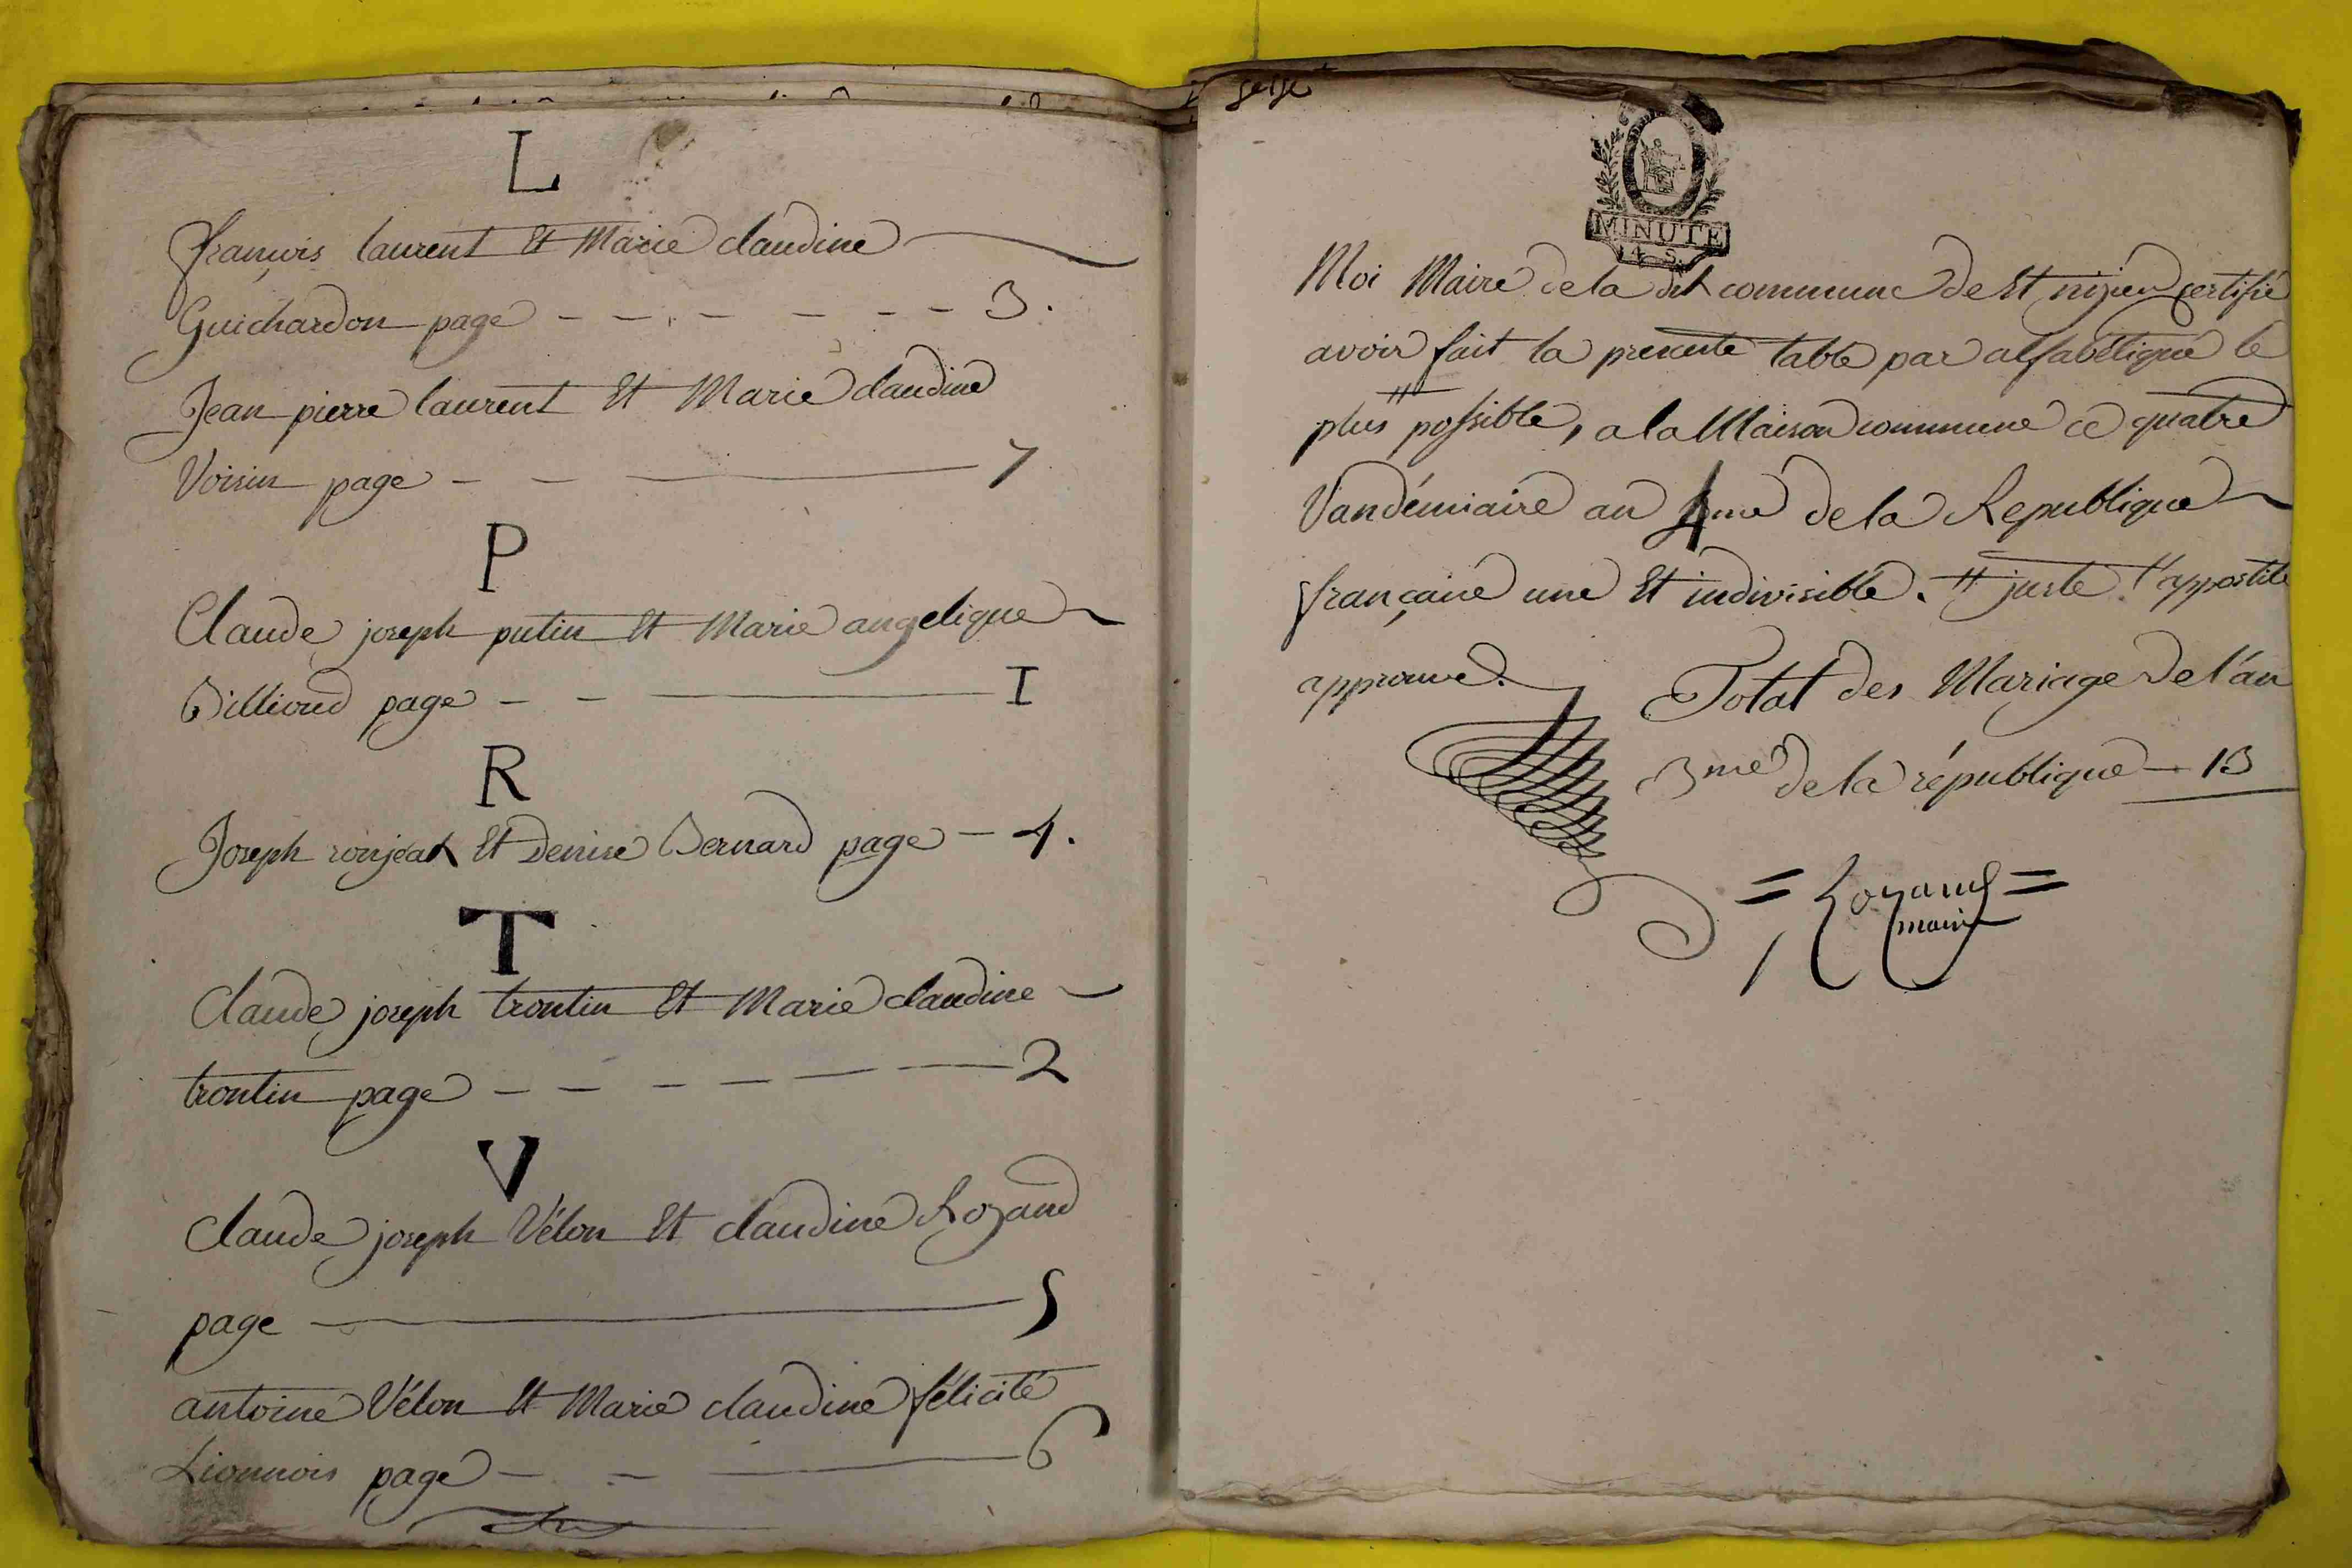 L
françois laurent Et Marie claudine
Guichardon page - - - - - - 3.
Jean pierre laurent Et Marie claudine
Voisin page - - — 7
P
Claude joseph putin Et Marie angelique
Billioud page - - — I
R
Joseph ronjeat Et Denise Bernard page - 4.
T
Claude joseph trontin Et Marie claudine
trontin page - - - - - — 2
V
Claude joseph Vélon Et claudine Rozand
page — 5
antoine Vélon Et Marie claudine félicité
Lionnois page - - — 6
seize
MINUTE
4 S.
Moi Maire de la dt commune de St nizier certifie
avoir fait la presente table par alfabétique le
plus # possible, a la Maison commune ce quatre
Vandémiaire an 4me de la Republique
française une Et indivisible. # juste. l'appostile
approuvé.
Total des Mariage de l'an
3me de la république — 13
= Rozand =
maire